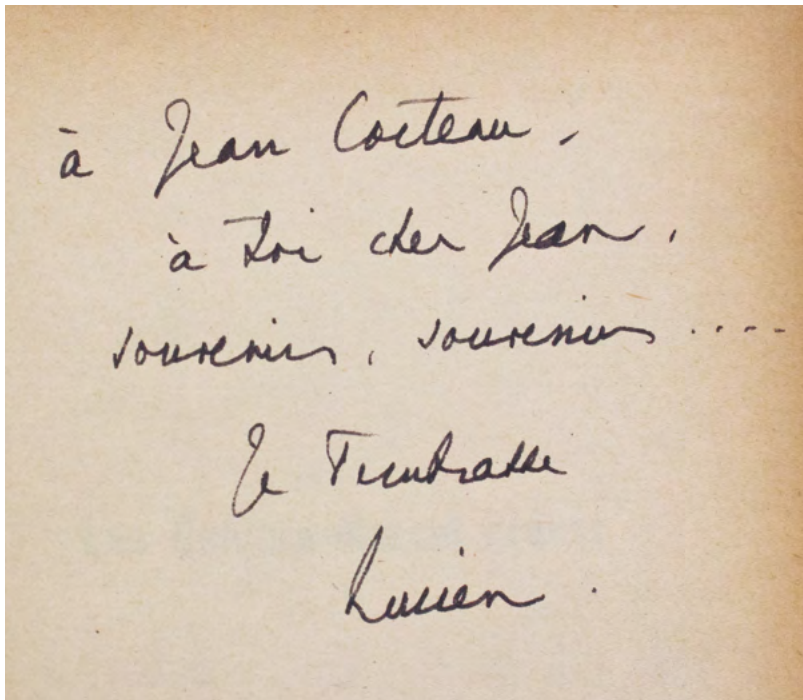 à Jean Cocteau,
à toi cher Jean,
souvenirs, souvenirs .....
Je T'embrasse
Lucien.